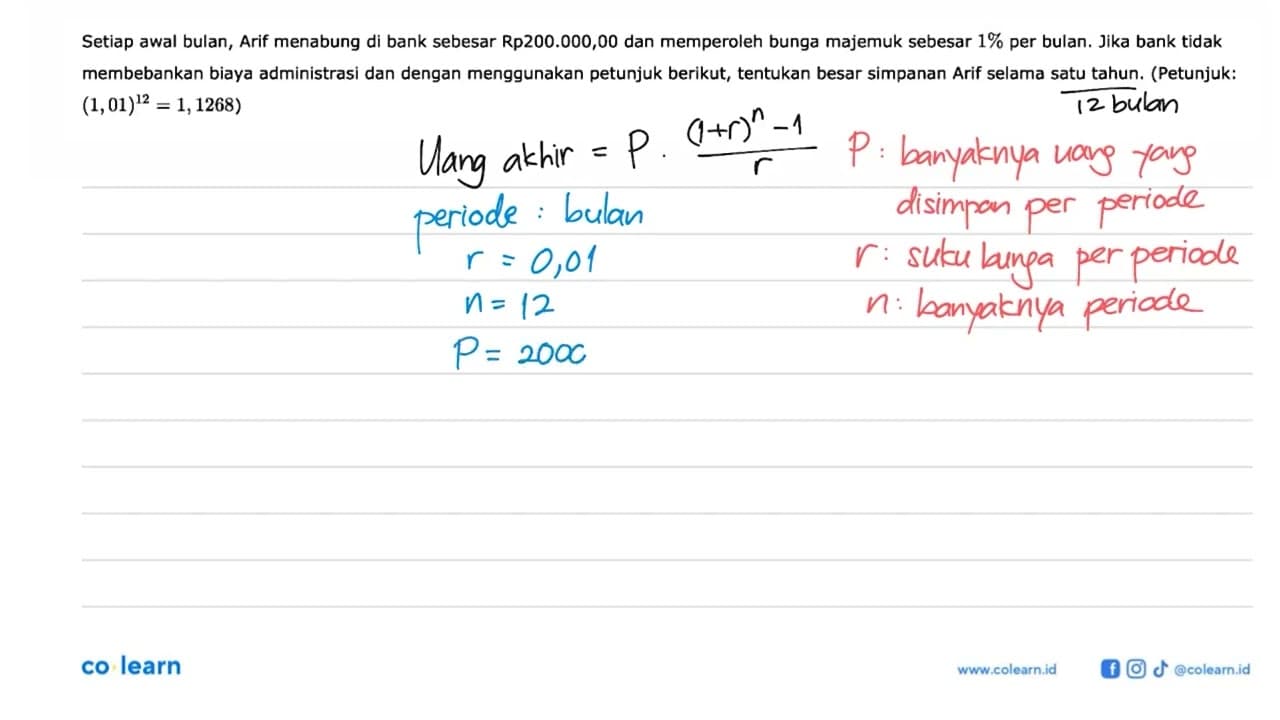 Setiap awal bulan, Arif menabung di bank sebesar Rp200.000,00 dan memperoleh bunga majemuk sebesar 1% per bulan. Jika bank tidak
membebankan biaya administrasi dan dengan menggunakan petunjuk berikut, tentukan besar simpanan Arif selama satu tahun. (Petunjuk:
(1,01)¹² = 1,1268)
12 bulan
Uang akhir = P . ((1+r)ⁿ - 1)/r
P : banyaknya uang yang
disimpan per periode
periode : bulan
r = 0,01
r : suku bunga per periode
n = 12
n : banyaknya periode
P = 2000
co learn
www.colearn.id
@colearn.id